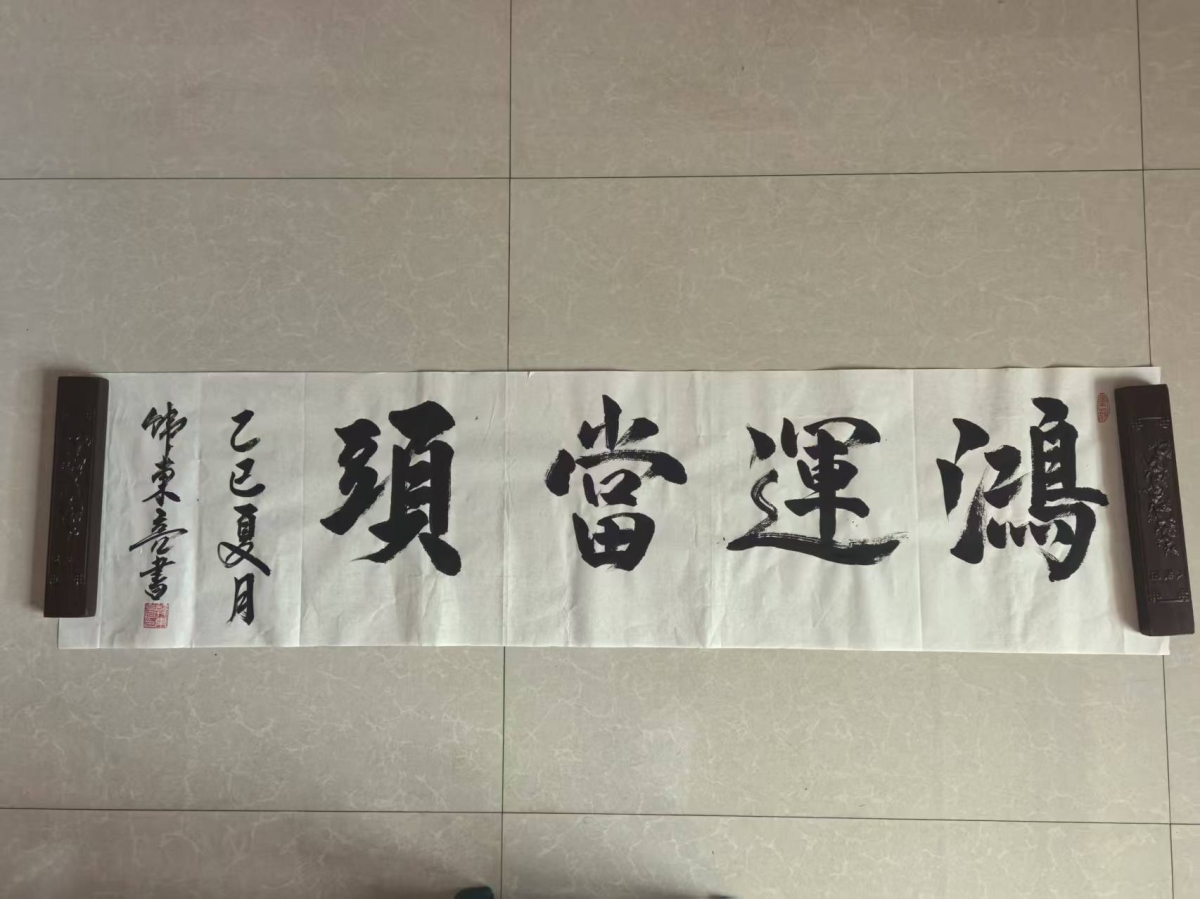 鴻運當頭
乙巳夏月
東亮書